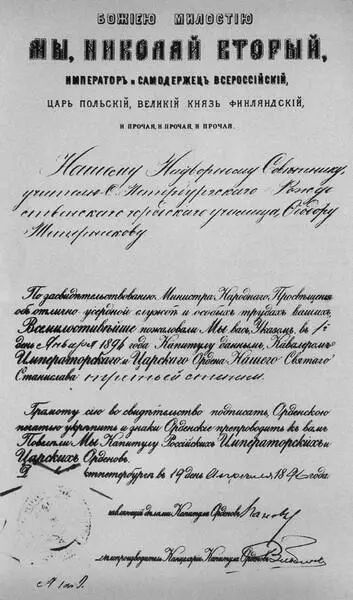 БОЖІЕЮ МИЛОСТІЮ
МЫ, НИКОЛАЙ ВТОРЫЙ,
ИМПЕРАТОРЪ и САМОДЕРЖЕЦЪ ВСЕРОССІЙСКІЙ,
ЦАРЬ ПОЛЬСКІЙ, ВЕЛИКІЙ КНЯЗЬ ФИНЛЯНДСКІЙ,
И ПРОЧАЯ, И ПРОЧАЯ, И ПРОЧАЯ.
Нашему Надворному Совѣтнику,
учителю С. Петербургскаго Рожде
ственскаго городскаго училища, Ѳедору
Тетерникову
По засвидѣтельствованію Министра Народнаго Просвѣщенія
объ отлично усердной службѣ и особыхъ трудахъ вашихъ,
Всемилостивѣйше пожаловали Мы васъ, Указомъ, въ 1й
день Января 1896 года Капитулу даннымъ, Кавалеромъ
Императорскаго и Царскаго Ордена Нашего Святаго
Станислава третьей степени.
Грамоту сію во свидѣтельство подписать, Орденскою
печатью укрѣпить и знаки Орденскіе препроводить къ вамъ
Повелѣли Мы Капитулу Россійскихъ Императорскихъ и
Царскихъ Орденовъ.
въ 19 день Апрѣля 1896 года
Капитула Орденовъ
Капитула Орденовъ